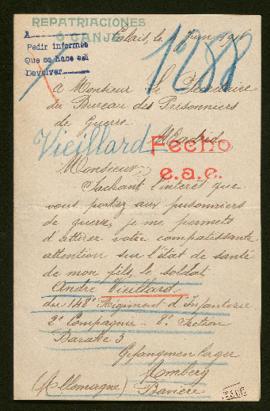 REPATRIACIONES
O CANJE
A
Pedir informes
Que se hace así
Devolver
1288
A Monsieur le Secrétaire
du Bureau des Prisonniers
de Guerre
Madrid
Vieillard
Fecho
e.a.c.
Monsieur,
Sachant l'intérêt que
vous portez aux prisonniers
de guerre, je me permets
d'attirer votre compatissante
attention sur l'état de santé
de mon fils, le soldat
André Vieillard
du 148e Régiment d'Infanterie
2e Compagnie - 1e Section
Baraque 3
Gefangenenlager
(Allemagne) Bavière